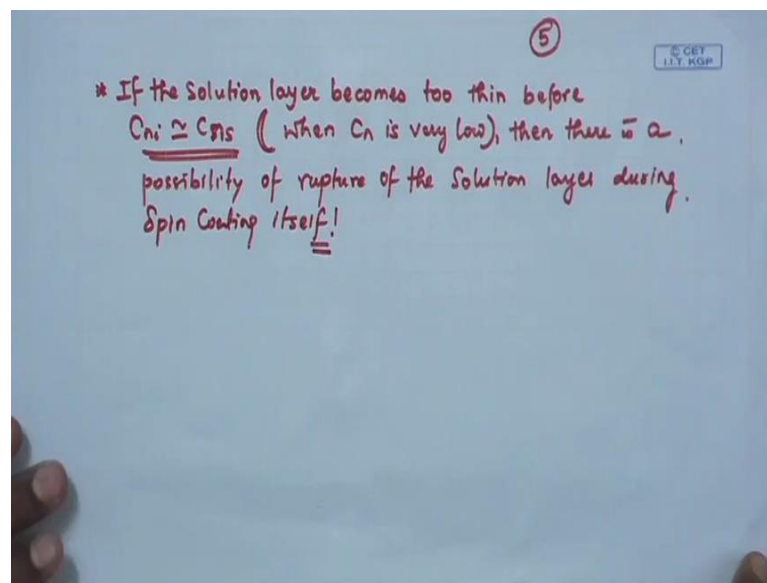 5
© CET
I.I.T. KGP
* If the solution layer becomes too thin before
Cni ≃ Cns ( when Cn is very low), then there is a
possibility of rupture of the solution layer during
Spin Coating itself!